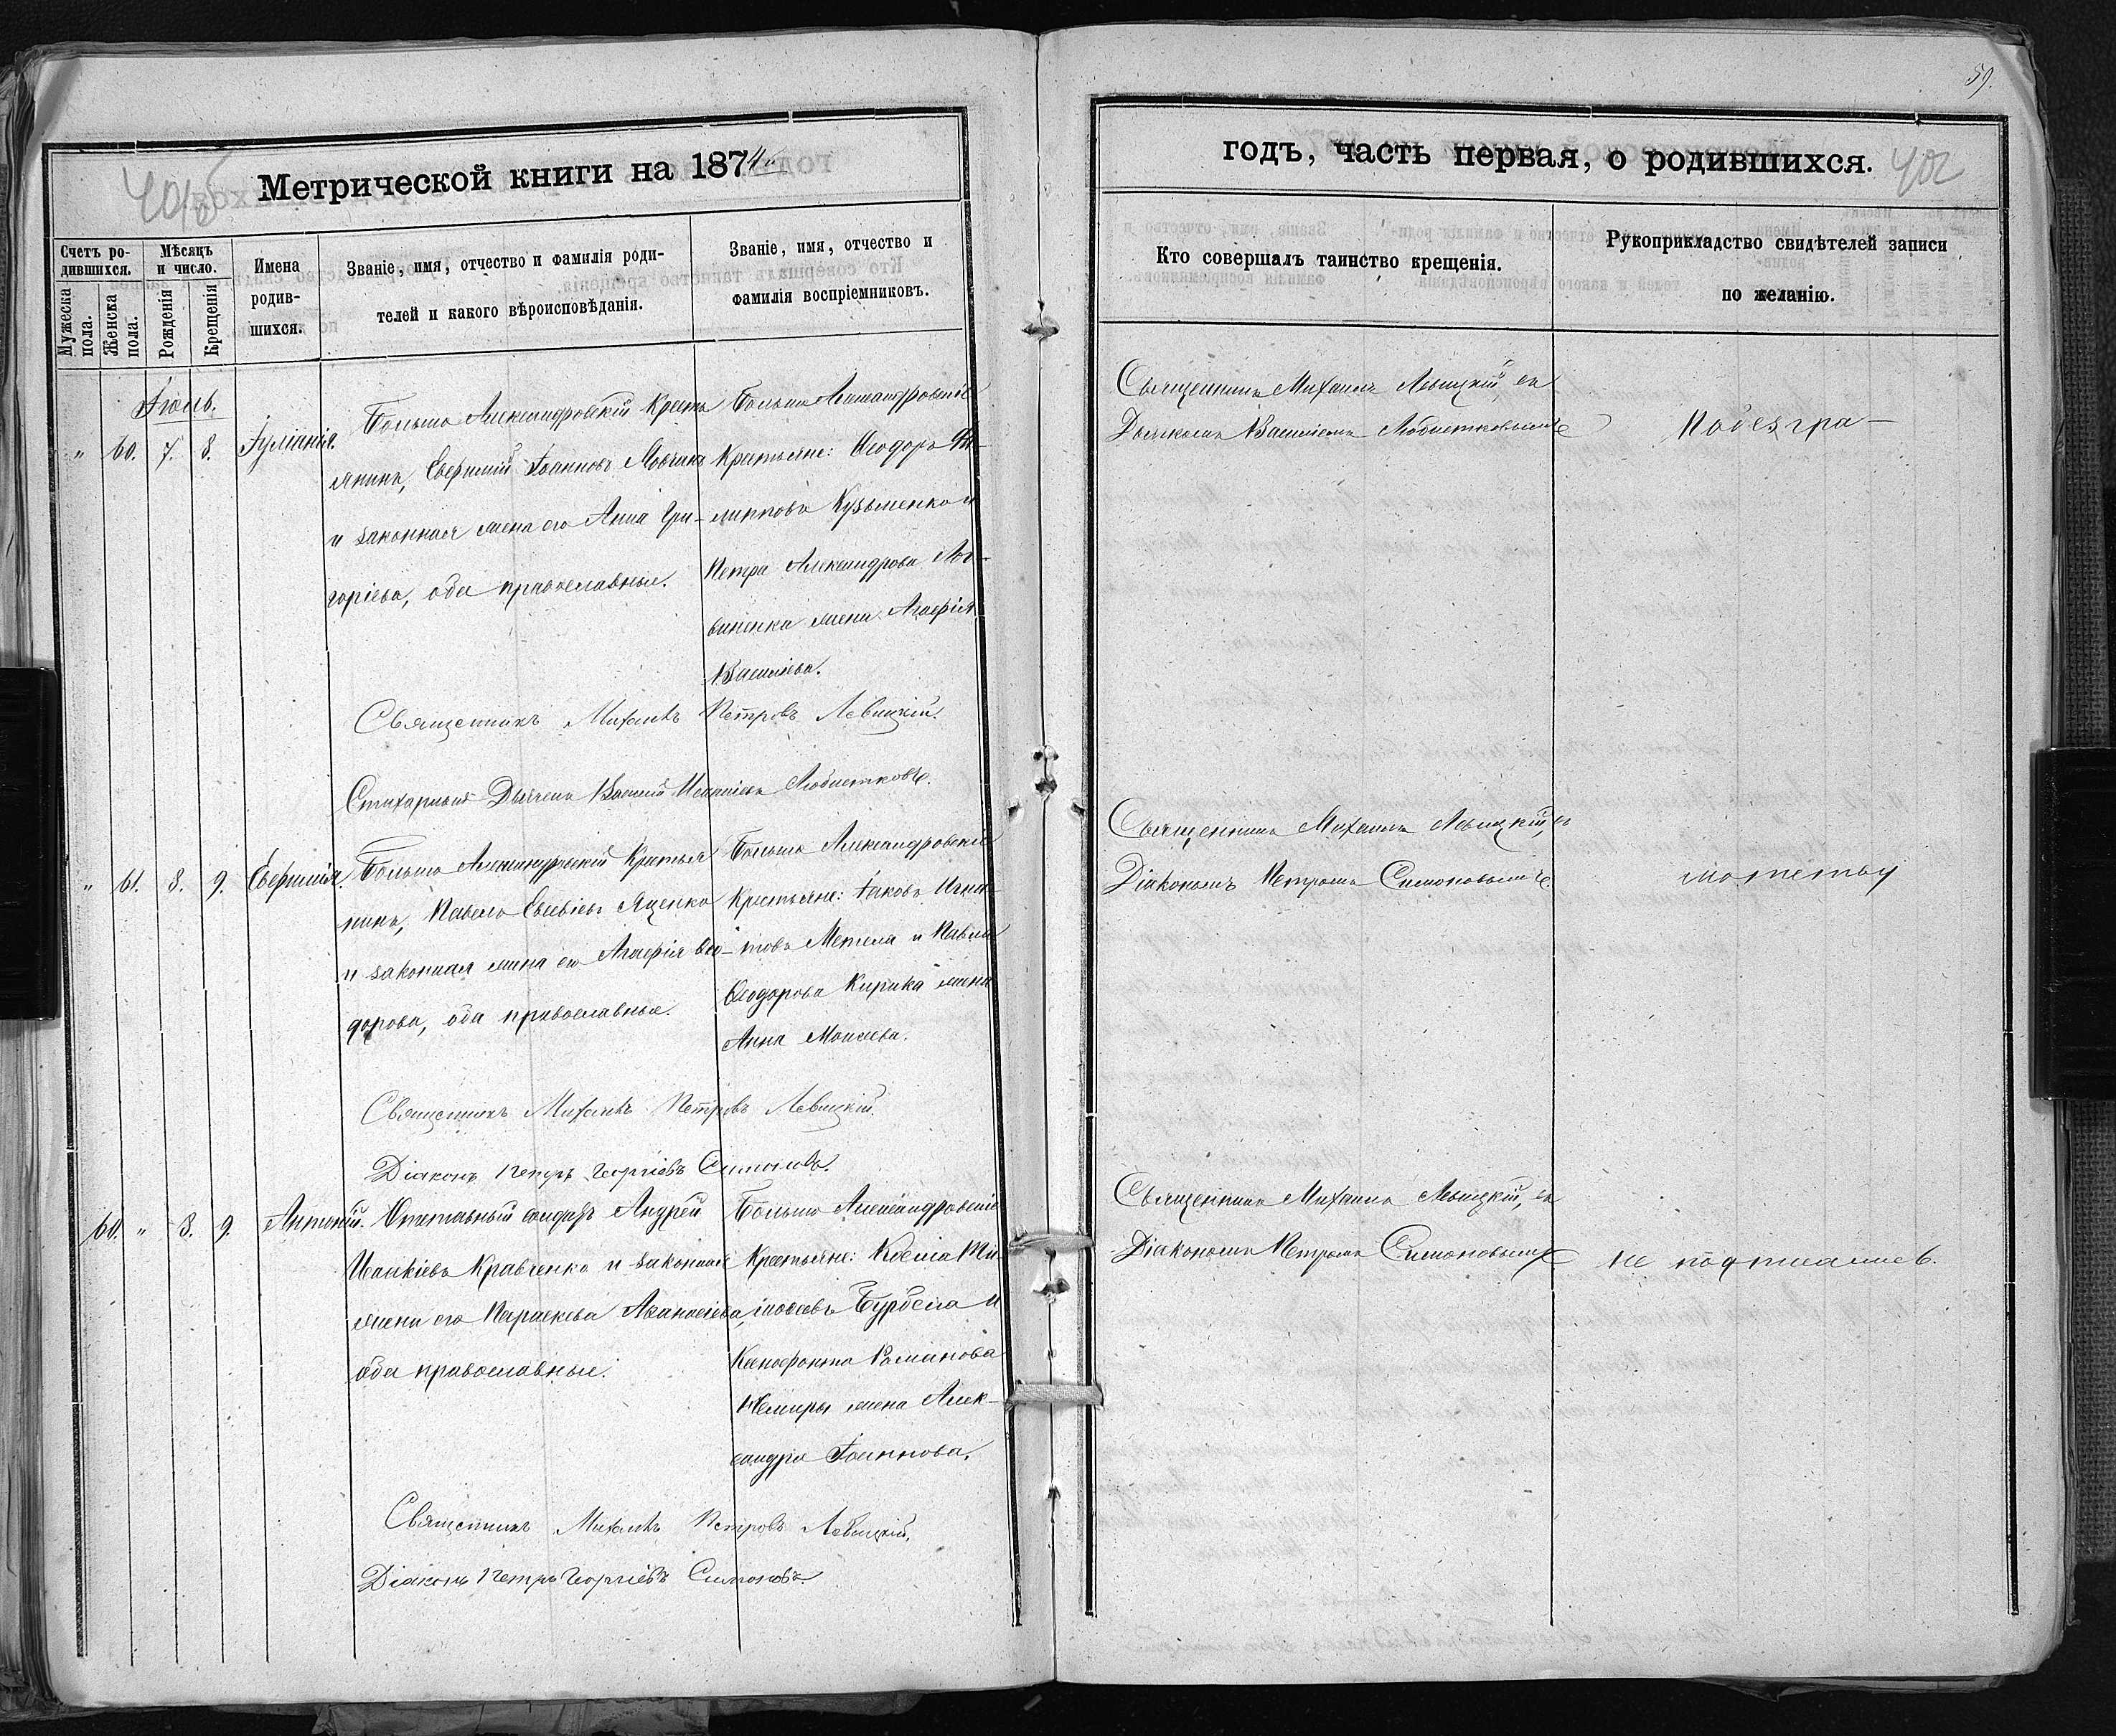 59.
Метрической книги на 1874й
годъ, часть первая, о родившихся.
402
Счетъ ро-
дившихся.
Мужеска пола.
Женска пола.
Мѣсяцъ
и число.
Рожденія
Крещенія
Имена
родив-
шихся.
Званіе, имя, отчество и фамилія роди-
телей и какого вѣроисповѣданія.
Званіе, имя, отчество и
фамилія воспріемниковъ.
Кто совершалъ таинство крещенія.
Рукоприкладство свидѣтелей записи
по желанію.
Іюль.
" 60. 7. 8. Іуліанія.
Больше Александровскій Кресть
янинъ, Евфимій Іоанновъ Мовчанъ
и законная жена его Анна Гри-
горіева, оба православные.
Больше Александровскіе
Крестьяне: Ѳеодоръ Фи-
липповъ Кузьменко и
Петра Александрова Лог-
виненка жена Агафія
Василіева.
Священникъ Михаилъ Левицкій, съ
Дьячкомъ Василіемъ Любистковымъ
Священникъ Михаилъ Петровъ Левицкій.
Стихарный Дьячекъ Василій Любистковъ.
" 61. 8. 9. Евфимія.
Больше Александровскій Крестья
нинъ, Павелъ Евсевіевъ Яценко
и законная жена его Агафія Ѳео-
дорова, оба православные.
Больше Александровскіе
Крестьяне: Іаковъ Игна-
товъ Метела и Павла
Ѳеодорова Кирика жена
Анна Моисеева.
Священникъ Михаилъ Левицкій, съ
Діакономъ Петромъ Симоновымъ.
Священникъ Михаилъ Петровъ Левицкій.
Діаконъ Петръ Георгіевъ Симоновъ.
60. " 8. 9. Антоній.
Отставный солдатъ Андрей
Іоакіевъ Кравченко и законная
жена его Параскева Аѳанасіева,
оба православные.
Больше Александровскіе
Крестьяне: Косма Ти-
моѳеевъ Бурбела и
Ксенофонта Романова
Немиры жена Алек-
сандра Іоаннова.
Священникъ Михаилъ Левицкій, съ
Діакономъ Петромъ Симоновымъ
не подписались.
Священникъ Михаилъ Петровъ Левицкій.
Діаконъ Петръ Георгіевъ Симоновъ.